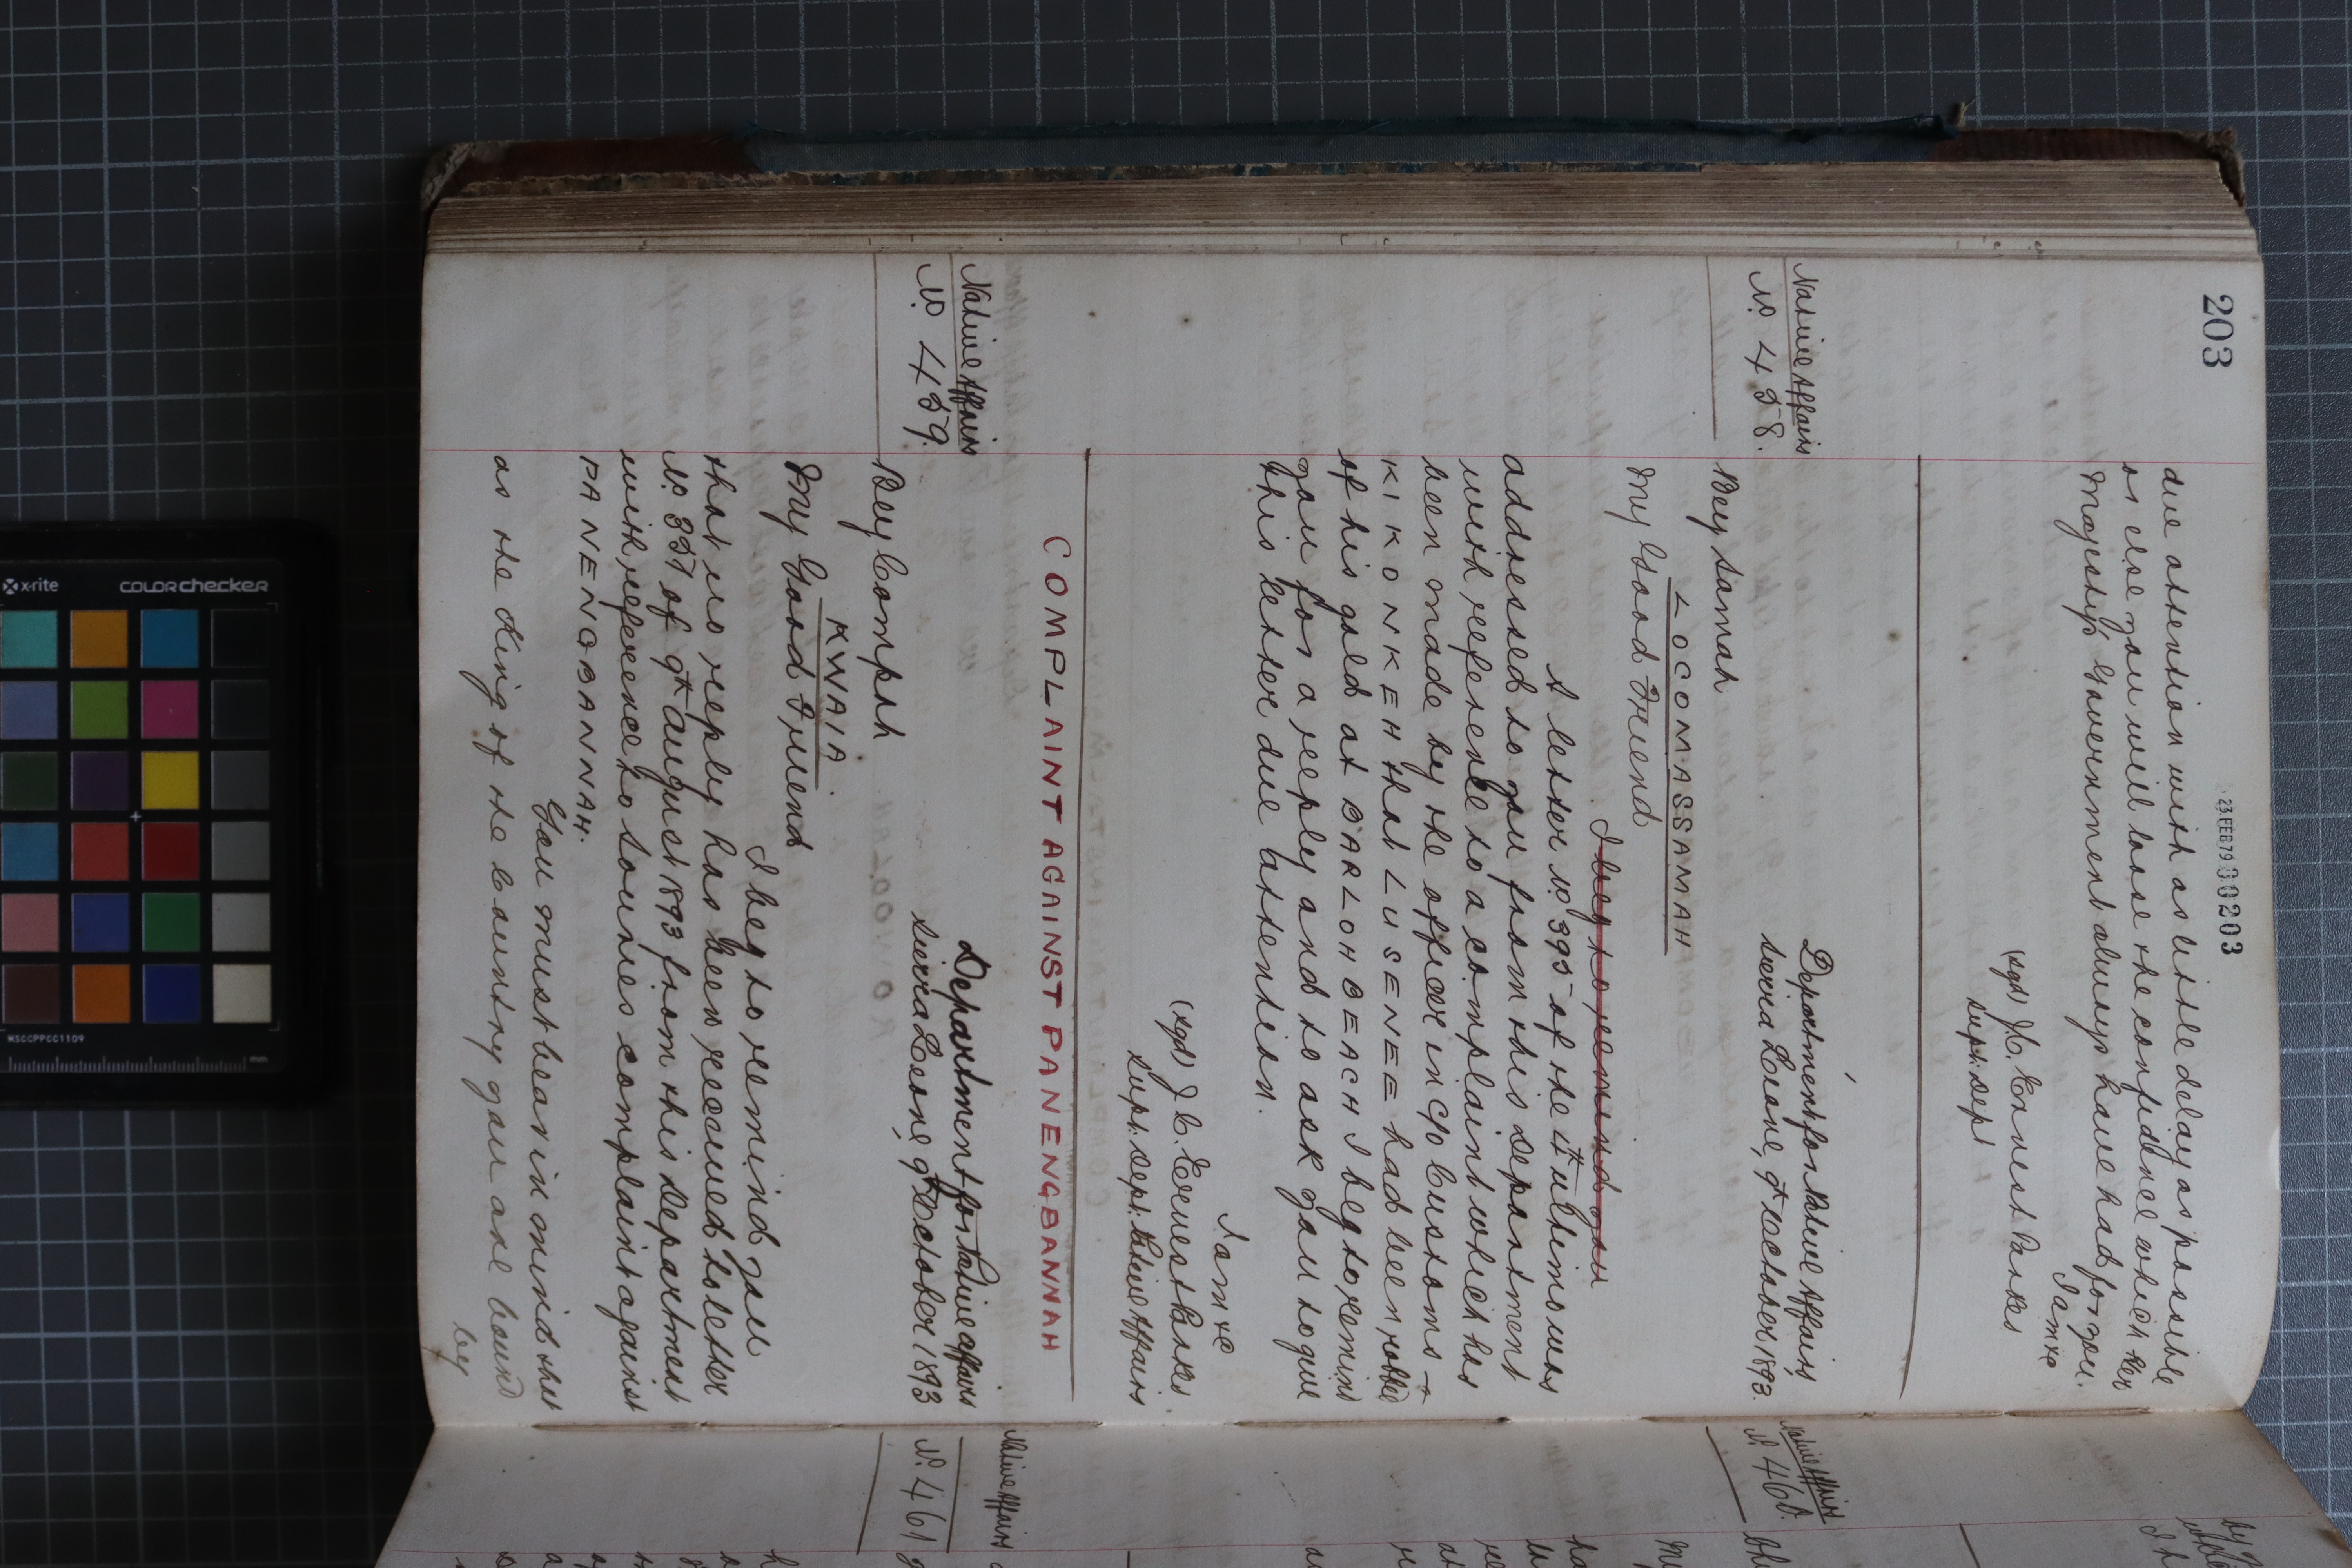 203
23 FEB 79 000203
due attention with as little delay as possible
or else you will lose the confidence which Her
Majesty's Government always have had for you.
I am &c
(sgd) J. C. Ernest Parkes
Supt: Dept
Native Affairs
No. 458.
Department for Native Affairs,
Sierra Leone, 9th October 1893.
Bey Simah
LOCOMASSAMAH
My Good Friend
I beg to remind you
A letter No. 395 of the 4th ultimo was
addressed to you from this Department
with reference to a complaint which has
been made by the officer in c/o Customs →
KIKONKEH that LUSENEE had been robbed
of his gold at BARLOH BEACH I beg to remind
you for a reply and to ask you to give
this letter due attention.
I am &c
(sgd) J. C. Ernest Parkes
Supt: Dept: Native Affairs
COMPLAINT AGAINST PANENGBANNAH
Native Affairs
No. 459.
Department for Native Affairs
Sierra Leone, 9th October 1893
Bey Comph
KWAIA
My Good Friend
I beg to remind you
that no reply has been received to letter
No. 357 of 9th August 1893 from this Department
with reference to Sourie's complaint against
PANENGBANNAH.
You must bear in mind that
as the King of the Country you are bound
by
Native Affairs
No. 460.
Native Affairs
No. 461